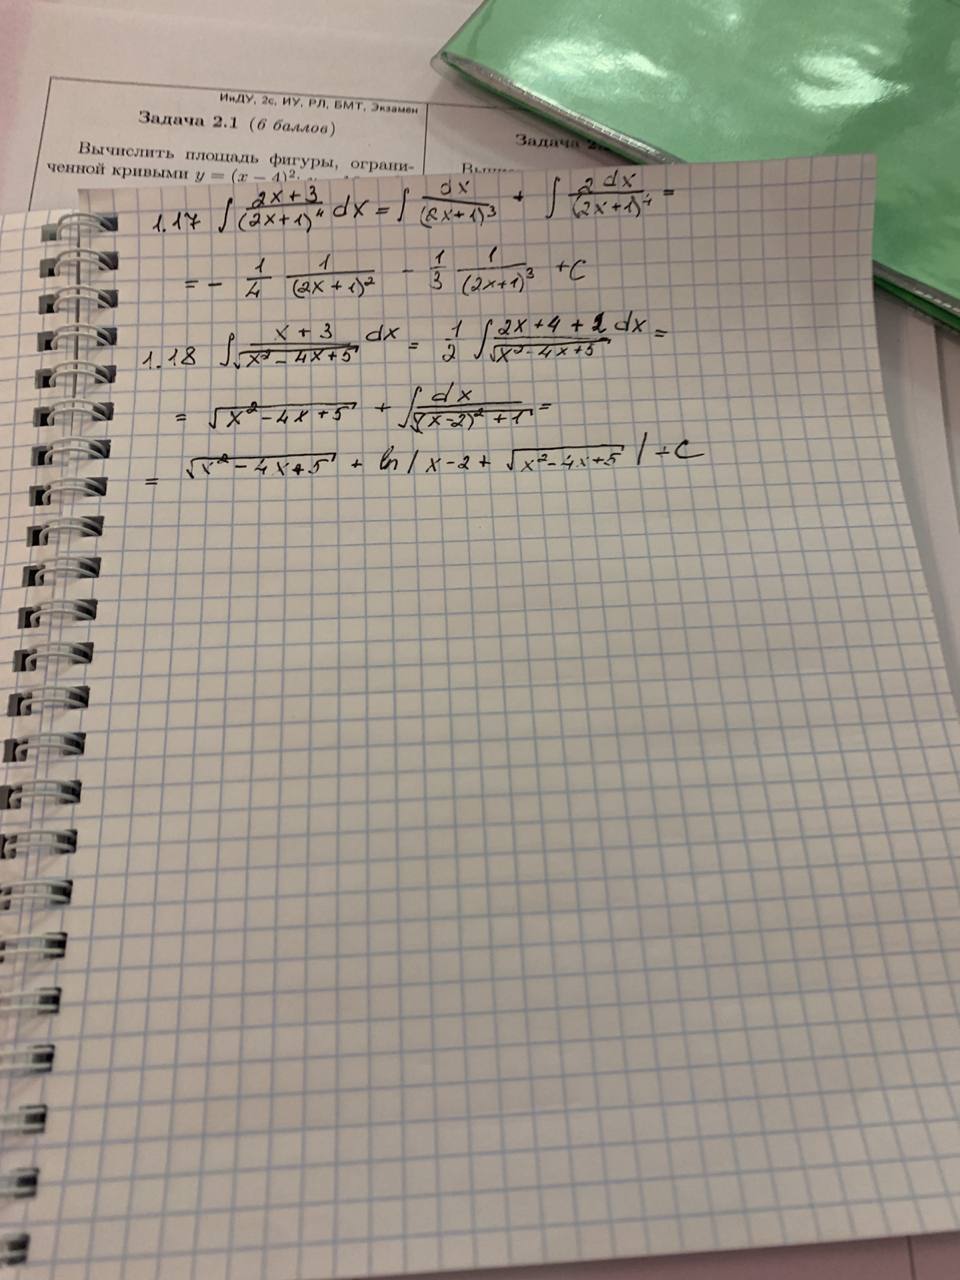 ИиДУ, 2с, ИУ, РЛ, БМТ, Экзамен
Задача 2.1 (6 баллов)
Вычислить площадь фигуры, ограни-
ченной кривыми y = (x − 4)²
Задача 2.
1.17 ∫ (2x+3)/(2x+1)⁴ dx = ∫ dx/(2x+1)³ + ∫ 2dx/(2x+1)⁴ =
= − 1/4 1/(2x+1)² − 1/3 1/(2x+1)³ + C
1.18 ∫ (x+3)/√(x²−4x+5) dx = 1/2 ∫ (2x+4+2)/√(x²−4x+5) dx =
= √(x²−4x+5) + ∫ dx/√((x−2)²+1) =
= √(x²−4x+5) + ln|x−2+√(x²−4x+5)| + C